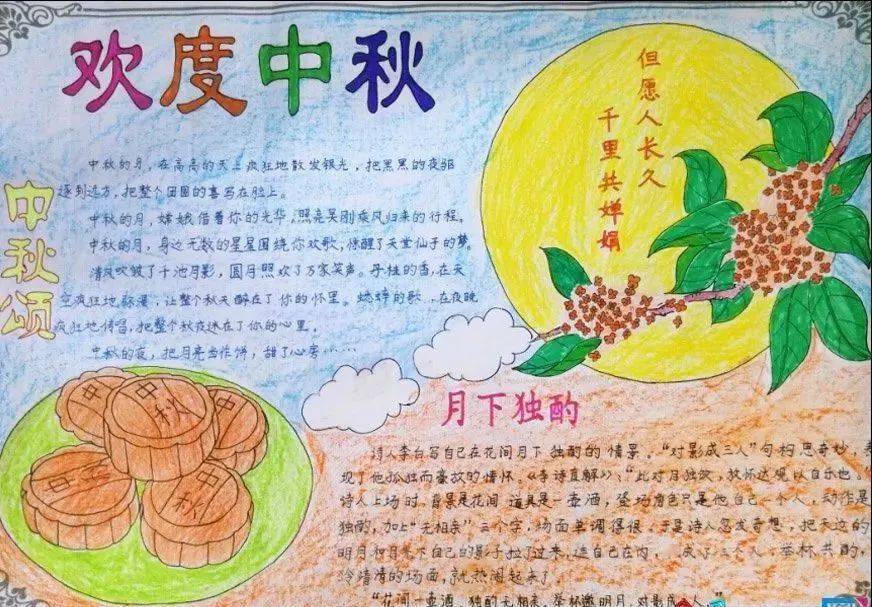 欢度中秋
但愿人长久
千里共婵娟
中秋颂
中秋的月，在高高的天上疯狂地散发银光，把黑黑的夜驱
逐到远方，把整个团圆的喜写在脸上。
中秋的月，嫦娥借着你的光华，照亮吴刚乘风归来的行程。
中秋的月，身边无数的星星围绕你欢歌，惊醒了天堂仙子的梦。
清风吹皱了千池月影，圆月照欢了万家笑声。丹桂的香，在天
空疯狂地弥漫，让整个秋天醉在了你的怀里。蟋蟀的歌，在夜晚
疯狂地传唱，把整个秋夜迷在了你的心里。
中秋的夜，把月亮当作饼，甜了心房……
中秋
中秋
中秋
月下独酌
诗人李白写自己在花间月下独酌的情景。“对影成三人”句构思奇妙，表
现了他孤独而豪放的情怀。《李诗直解》：“此对月独饮，放怀达观以自乐也。
诗人上场时，背景是花间，道具是一壶酒，登场角色只是他自己一个人，动作是
独酌，加上“无相亲”三个字，场面单调得很。于是诗人忽发奇想，把天边的
明月和月光下自己的影子拉了过来，连自己在内，成了三个人，举杯共酌，
冷清清的场面，就热闹起来了。
“花间一壶酒，独酌无相亲，举杯邀明月，对影成三人。”